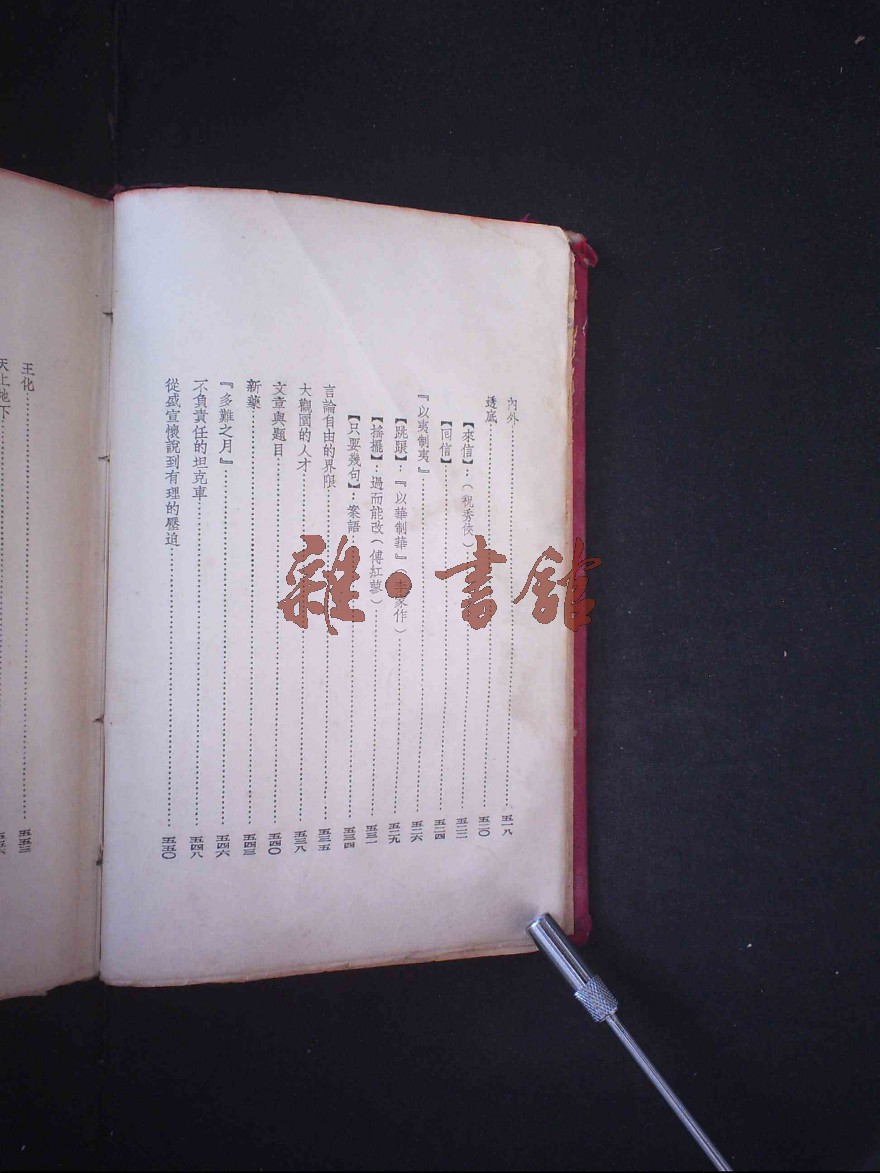 內外 五一八
透底 五二〇
【來信】：（祝秀俠） 五二二
【回信】 五二四
『以夷制夷』 五二六
【跳踉】：『以華制華』（李家作） 五二九
【搖擺】：過而能改（傅紅蓼） 五三一
【只要幾句】：案語 五三四
言論自由的界限 五三五
大觀園的人才 五三八
文章與題目 五四〇
新藥 五四三
『多難之月』 五四六
不負責任的坦克車 五四八
從盛宣懷說到有理的壓迫 五五〇
王化 五五三
天上地下 五五六
雜·書館